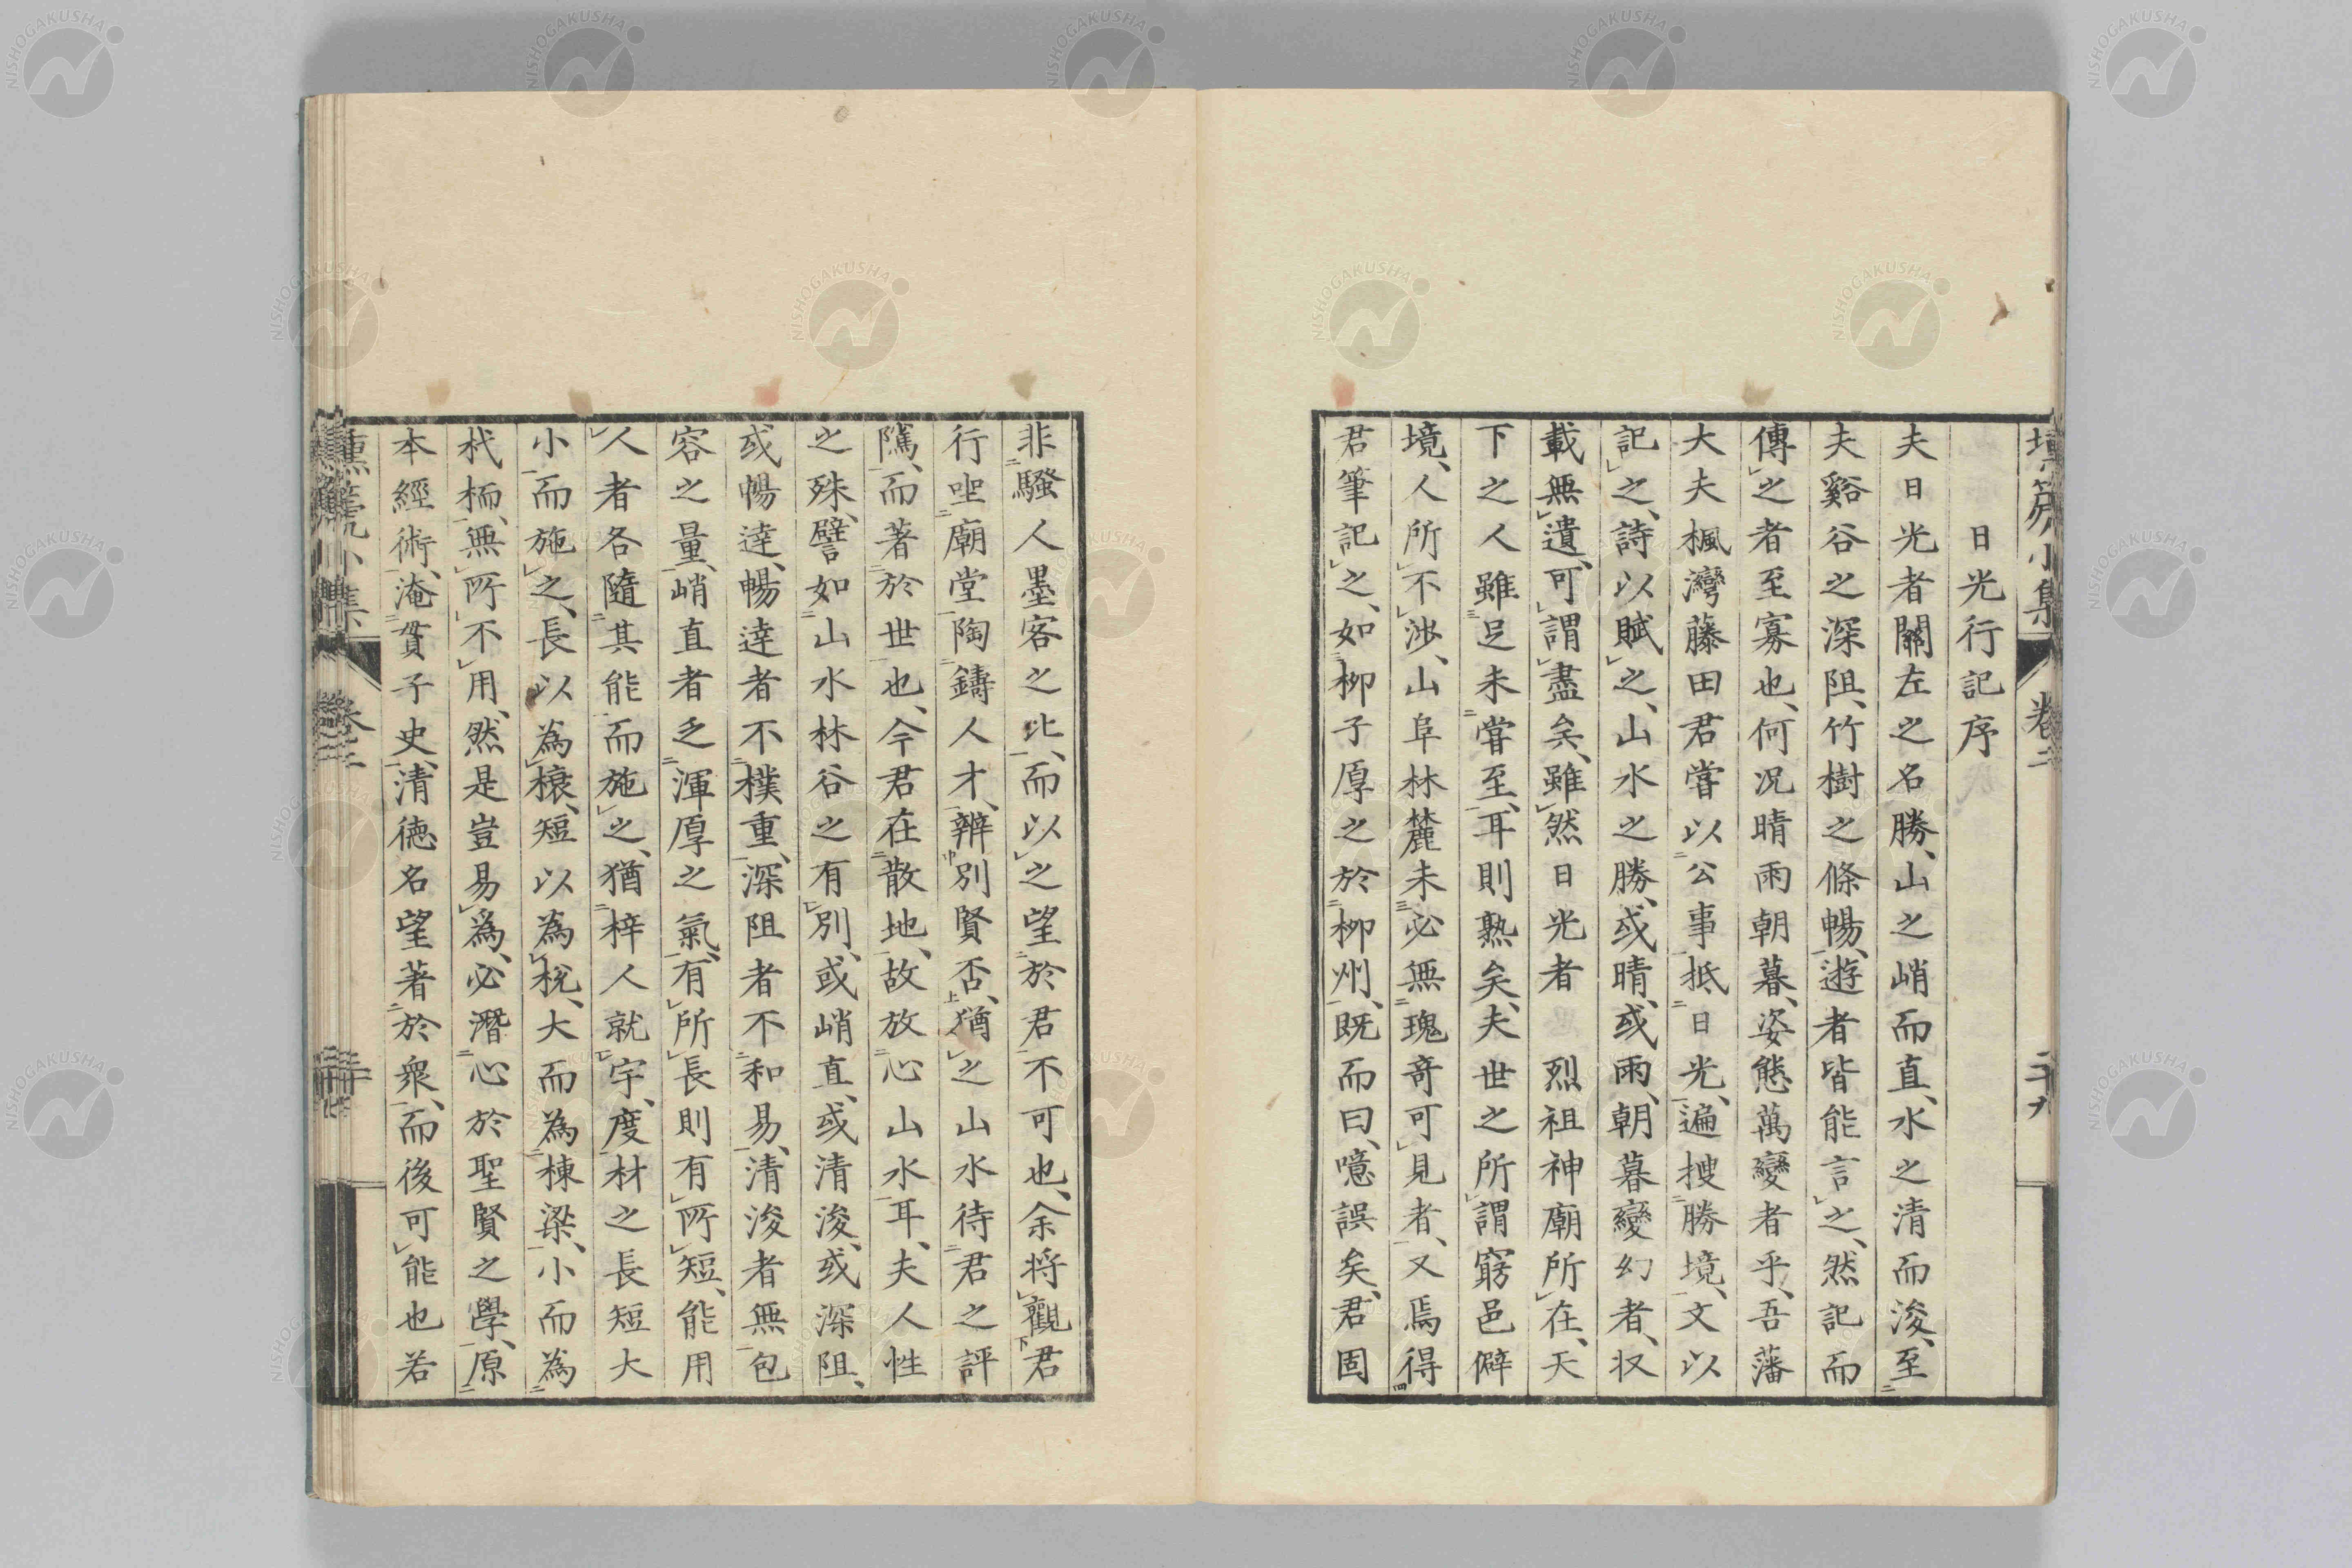 日光行記序
夫日光者關左之名勝、山之峭而直、水之清而浚、至
夫谿谷之深阻、竹樹之條暢、遊者皆能言之、然記而
傳之者至寡也、何况晴雨朝暮、姿態萬變者乎、吾藩
大夫楓灣藤田君甞以公事抵日光、遍搜勝境、文以
記之、詩以賦之、山水之勝、或晴、或雨、朝暮變幻者、収
載無遺、可謂盡矣、雖然日光者 烈祖神廟所在、天
下之人雖足未甞至、耳則熟矣、夫世之所謂窮邑僻
境、人所不渉、山阜林麓未必無瑰奇可見者、又焉得
君筆記之、如柳子厚之於柳州、既而曰、噫誤矣、君固
非騷人墨客之比、而以之望於君不可也、余将觀君
行坐廟堂陶鑄人才、辨別賢否、猶之山水待君之評
隲、而著於世也、今君在散地、故放心山水耳、夫人性
之殊、譬如山水林谷之有別、或峭直、或清浚、或深阻、
或暢達、暢達者不樸重、深阻者不和易、清浚者無包
容之量、峭直者乏渾厚之氣、有所長則有所短、能用
人者各隨其能而施之、猶梓人就宇、度材之長短大
小而施之、長以為榱、短以為梲、大而為棟梁、小而為
杙楄、無所不用、然是豈易爲、必潛心於聖賢之學、原
本經術、淹貫子史、清徳名望著於衆、而後可能也若
壎箎小集 卷二 二十九
NISHOGAKUSHA